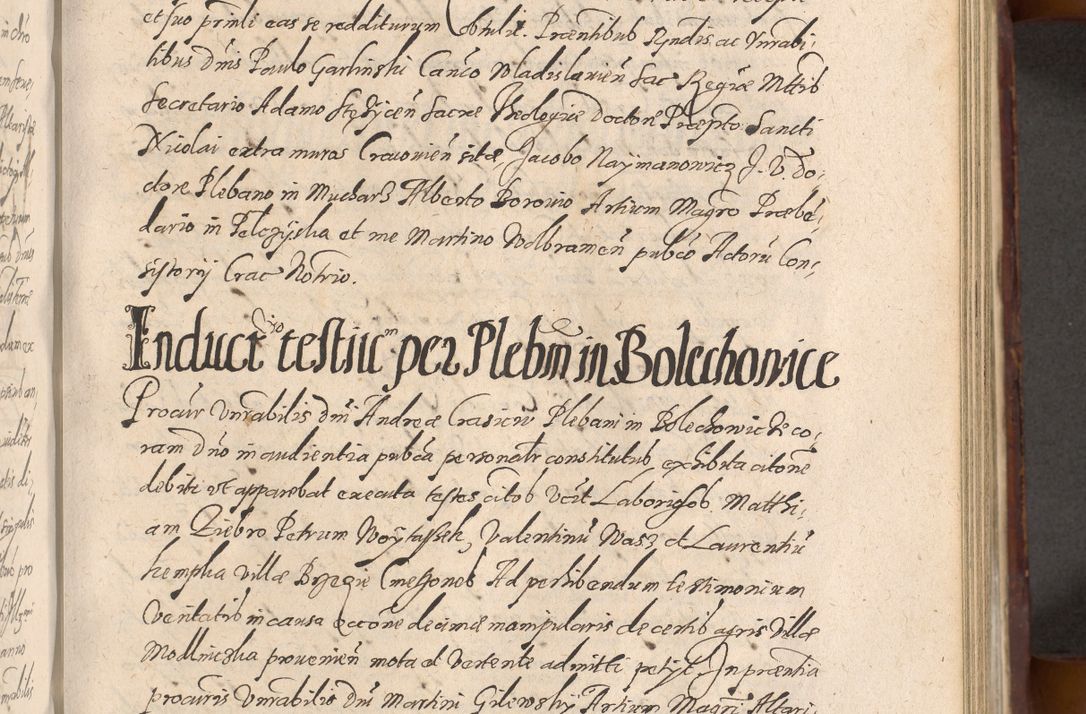 et suo principali eas se redditurum obtulit. Præntibus Rndis ac Vnrabi-
libus Dnis Paulo Garlinski Canco Vladislavien̄ Sac Regiæ Mttis
Secretario Adamo Stęsycen̄ Sacræ Theologiæ Doctore Præpto Sancti
Nicolai extra muros Cracovien̄ sitæ, Jacobo Naymanowicz J. V. Do-
ctore Plebano in Mucharz Alberto Borovio Artium Magro Præbē-
dario in Pelczyska et me Martino Wolbramen̄ pubco Actorū Con-
sistorij Crac Notrio.
Inductio testiū per Plebm in Bolechowice
Procur Vnrabilis Dni Andreæ Crasicii Plebani in Bolechowicze co-
ram Dno in audientia pubca personalr constitutus, exhibita citone
debite ut apparebat executa testes citos Vclt Laboriosos, Matthi-
am Ziebro, Petrum Woytassek, Valentinū Wass, et Laurentiū
kempka villæ Brzezie Cmethones Ad perhibendum testimonium
Veritatis in causa occōne decimæ manipularis de certis agris Villæ
Modlniczka provenien̄ mota et Vertente admitti petijt. In præntia
procuris Vnrabilis Dni Martini Gilewsky Artium Magri Altari-